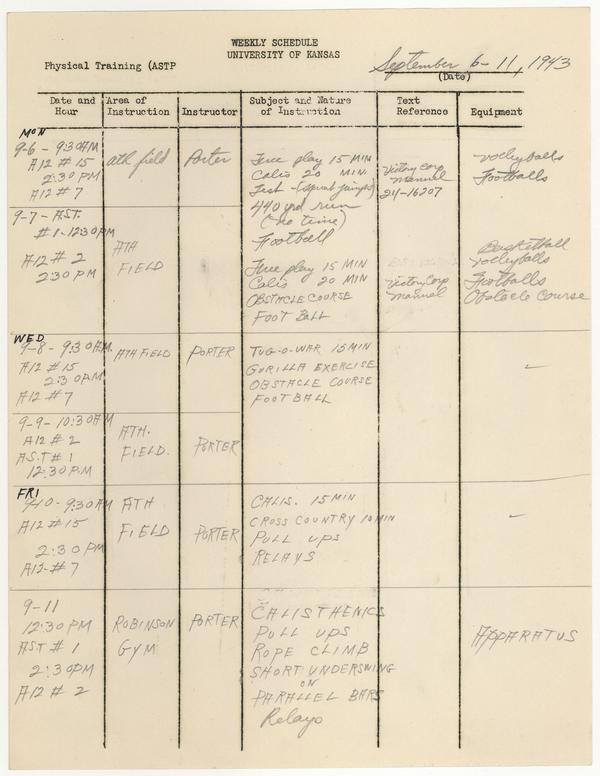 WEEKLY SCHEDULE
UNIVERSITY OF KANSAS
Physical Training (ASTP
September 6-11, 1943
(Date)
Date and Hour
Area of Instruction
Instructor
Subject and Nature of Instruction
Text Reference
Equipment
MON
9-6 - 9:30 AM
A12 # 15
2:30 PM
A12 # 7
ath field
Porter
Free play 15 MIN
Calis 20 MIN.
Test - (Squat jumps)
440 yd run
(no time)
Football
Victory Corp
Manual
24-16207
Volleyballs
Footballs
9-7 - AST.
# 1-1230PM
A12 # 2
2:30 PM
ATH
FIELD
Free play 15 MIN
Calis 20 MIN
OBSTACLE COURSE
FOOT BALL
Victory Corp
Manual
Basketball
Volleyballs
Footballs
Obstacle Course
WED
9-8 - 9:30 A.M.
A12 # 15
2:30 PM.
A12 # 7
ATH FIELD
PORTER
TUG-O-WAR 15 MIN
GORILLA EXERCISE
OBSTACLE COURSE
FOOTBALL
9-9- 10:30 AM
A12 # 2
AS.T # 1
12:30 P.M
ATH.
FIELD.
PORTER
FRI
9-10 - 9:30 AM
A12 # 15
2:30 PM
A12- # 7
ATH
FIELD
PORTER
CALIS. 15 MIN
CROSS COUNTRY 10 MIN
PULL UPS
RELAYS
9-11
12:30 PM
AS.T # 1
2:30PM
A12 # 2
ROBINSON
GYM
PORTER
CALISTHENICS
PULL UPS
ROPE CLIMB
SHORT UNDERSWING
ON
PARALLEL BARS
Relays
APPARATUS